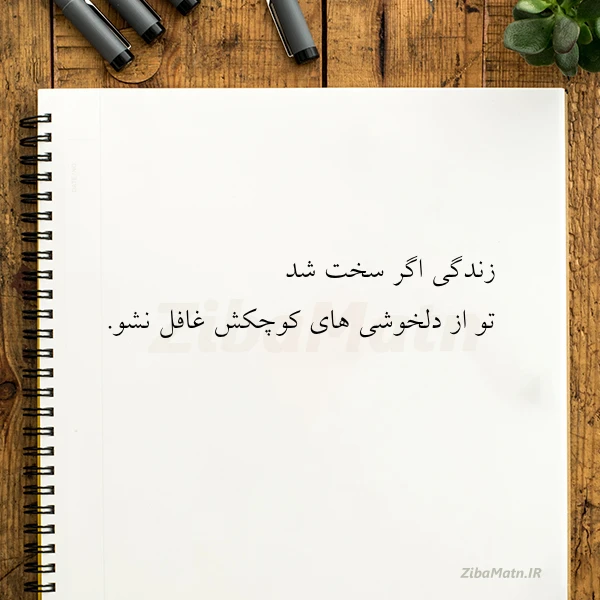 زندگی اگر سخت شد
تو از دلخوشی های کوچکش غافل نشو.
ZibaMatn
ZibaMatn.IR